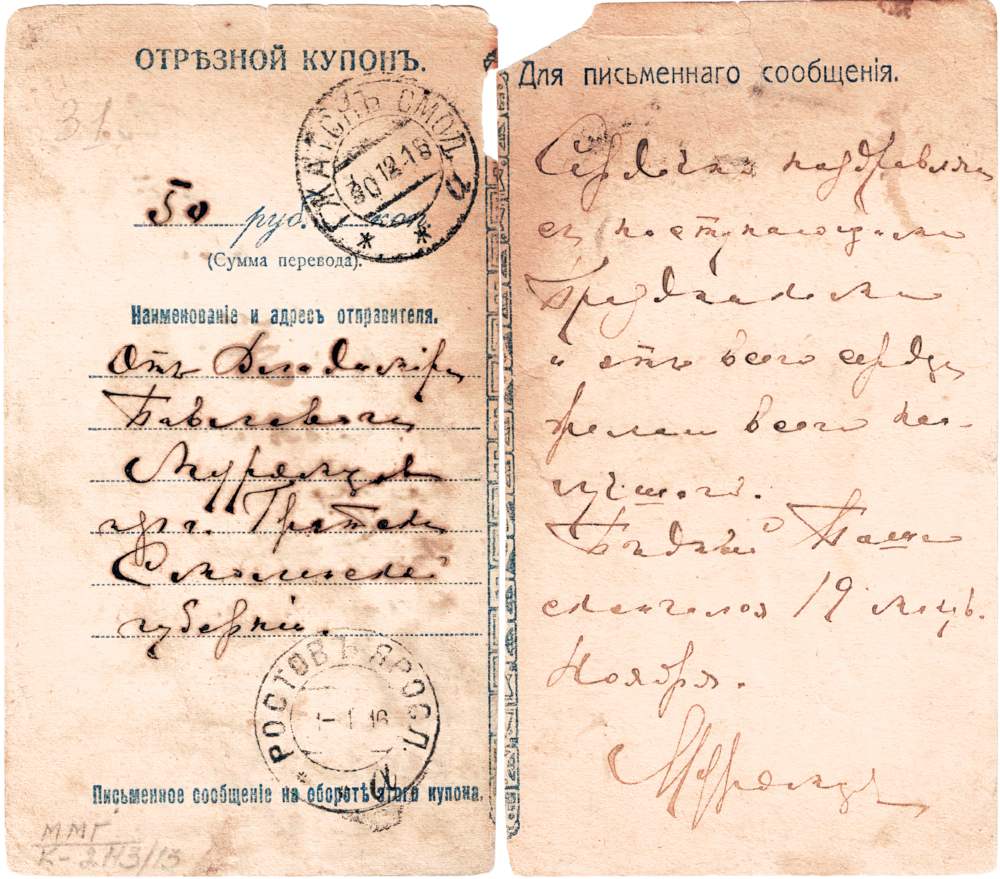 ОТРѢЗНОЙ КУПОНЪ.
31.
ГЖАТСКЪ СМОЛ.
30 12 18
50 руб. коп.
(Сумма перевода).
Наименованіе и адресъ отправителя.
Отъ Владиміра
Павловича
Муромцов
изъ г. Гжатска
Смоленской
губерніи.
РОСТОВЪ ЯРОСЛ.
1 16
а
Письменное сообщеніе на оборотѣ этого купона.
ММГ
К-2113/13
Для письменнаго сообщенія.
Сердечно поздравляю
съ наступающими
Праздниками
и отъ всего сердца
желаю всего наи-
лучшаго.
Бѣдный Паша
скончался 19
Ноября.